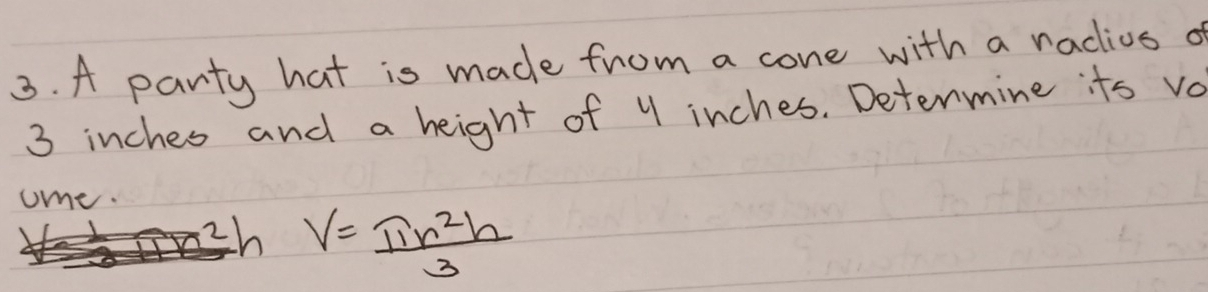 3. A party hat is made from a cone with a radius of
3 inches and a height of 4 inches. Determine its vol
ume.
V = πr²h / 3